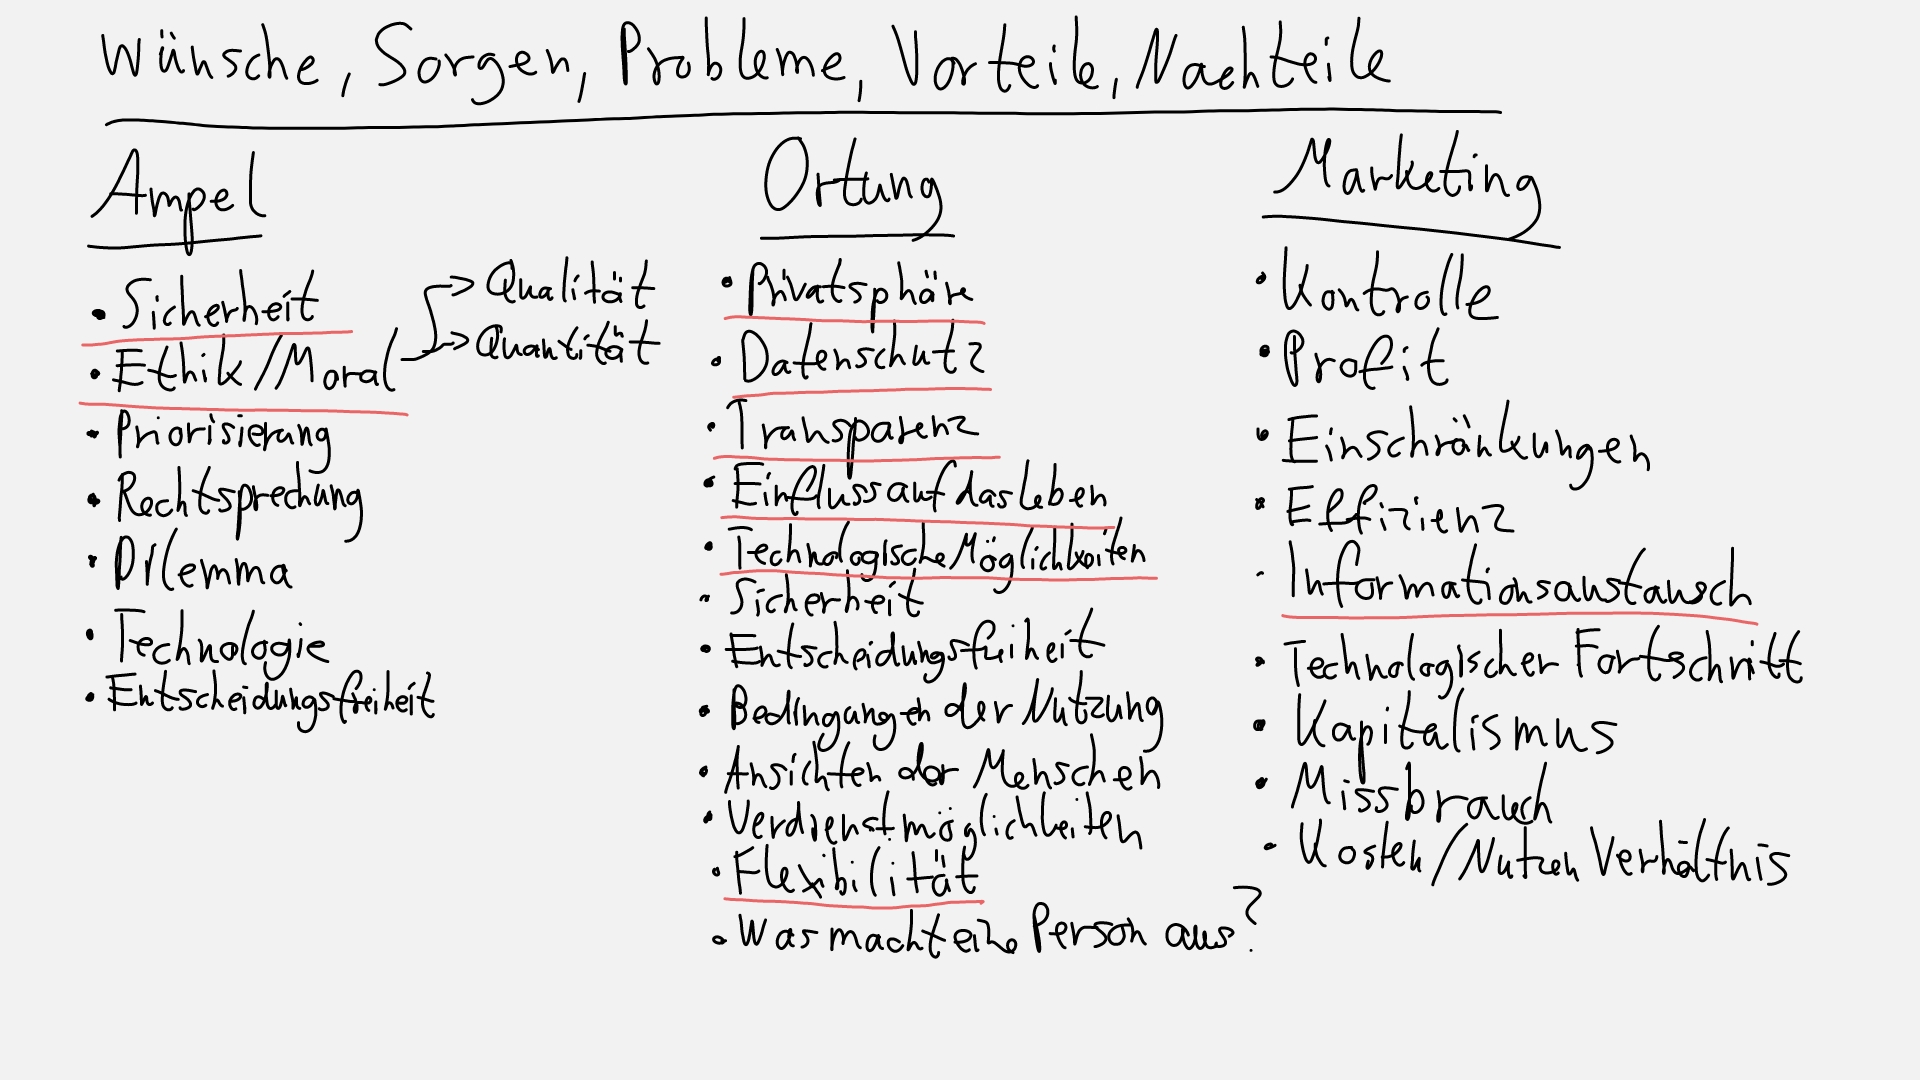 Wünsche, Sorgen, Probleme, Vorteile, Nachteile
Ampel
• Sicherheit
• Ethik/Moral
→ Qualität
→ Quantität
• Priorisierung
• Rechtsprechung
• Dilemma
• Technologie
• Entscheidungsfreiheit
Ortung
• Privatsphäre
• Datenschutz
• Transparenz
• Einfluss auf das Leben
• Technologische Möglichkeiten
• Sicherheit
• Entscheidungsfreiheit
• Bedingungen der Nutzung
• Ansichten der Menschen
• Verdienstmöglichkeiten
• Flexibilität
• Was macht eine Person aus?
Marketing
• Kontrolle
• Profit
• Einschränkungen
• Effizienz
• Informationsaustausch
• Technologischer Fortschritt
• Kapitalismus
• Missbrauch
• Kosten/Nutzen Verhältnis